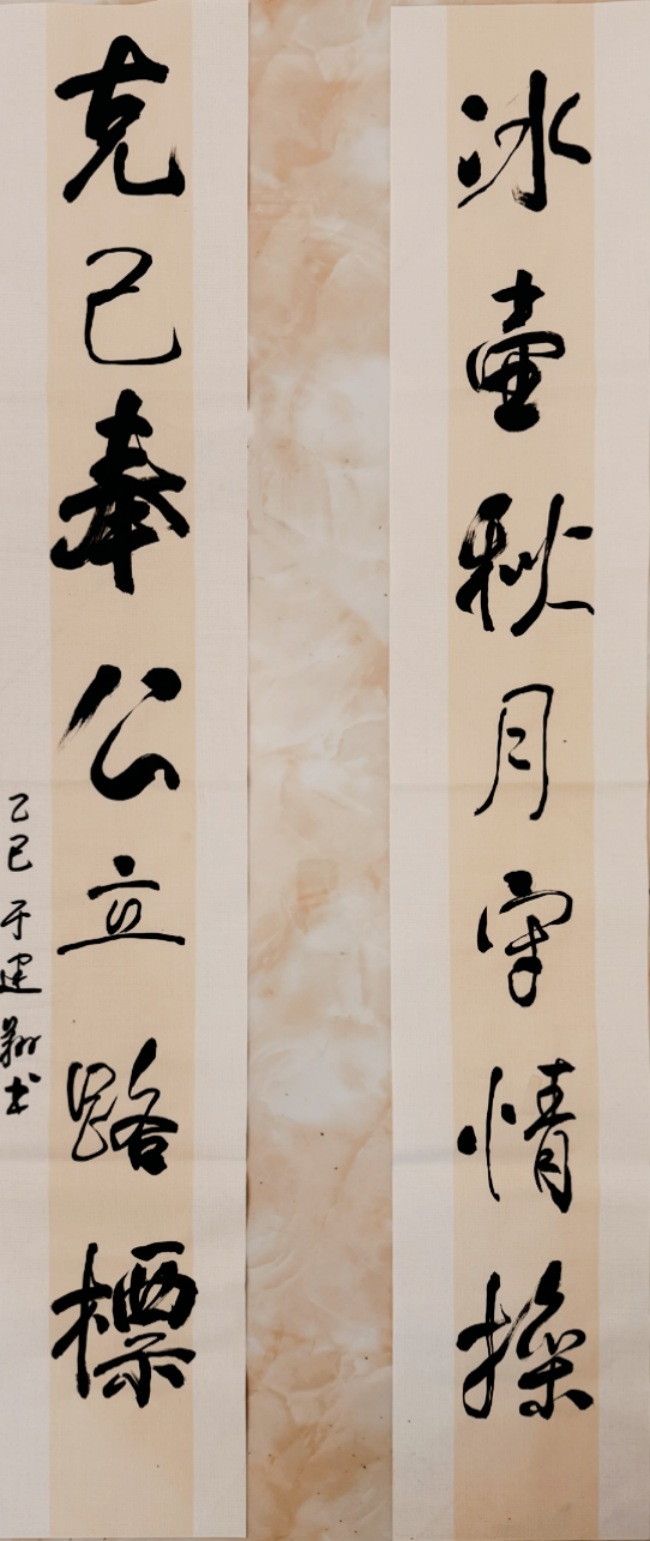 冰壶秋月守情操
克己奉公立路标
乙巳于建翔书